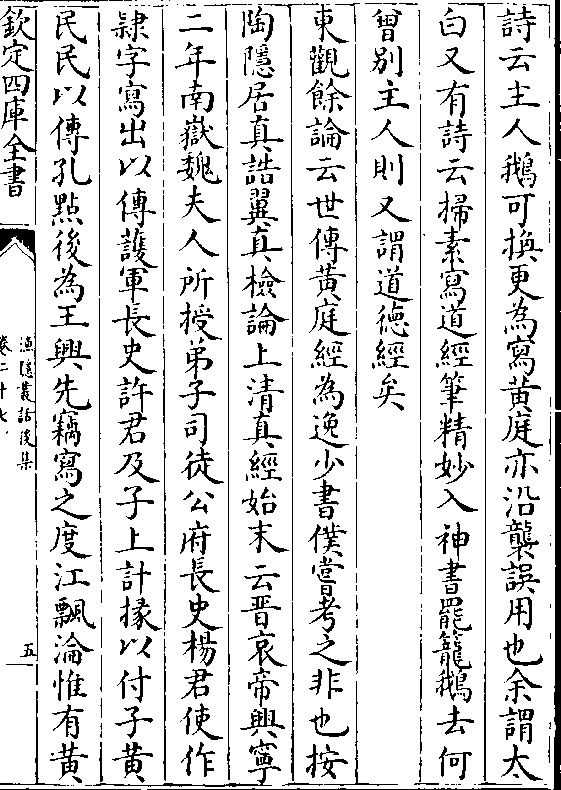 詩云主人鵝可換更為寫黃庭亦沿襲誤用也余謂太
白又有詩云掃素寫道經筆精妙入神書罷籠鵝去何
曾別主人則又謂道德經矣
東觀餘論云世傳黃庭經為逸少書僕嘗考之非也按
陶隱居真誥翼真檢論上清真經始末云晋哀帝興寧
二年南嶽魏夫人所授弟子司徒公府長史楊君使作
隸字寫出以傳護軍長史許君及子上計掾以付子黃
民民以傳孔黙後為王興先竊寫之度江飄淪惟有黃
欽定四庫全書
漁隱叢話後集
卷二十七
五